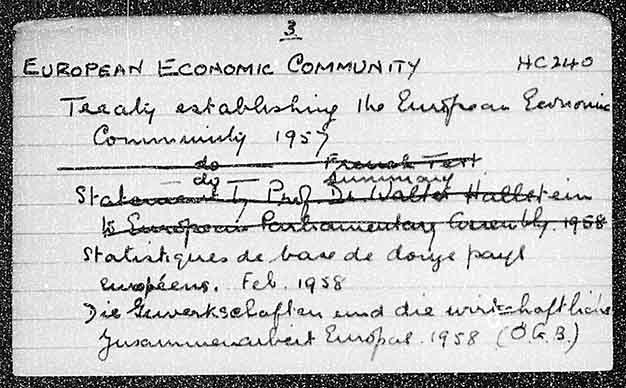 3
EUROPEAN ECONOMIC COMMUNITY HC240
Treaty establishing the European Economic
Community 1957
do French Text
do Summary
Statement by Prof Dr Walter Hallstein
to European Parliamentary Assembly. 1958
Statistiques de base de douze pays
européens. Feb. 1958
Die Gewerkschaften und die wirtschaftliche
Zusammenarbeit Europas. 1958 (Ö.G.B.)